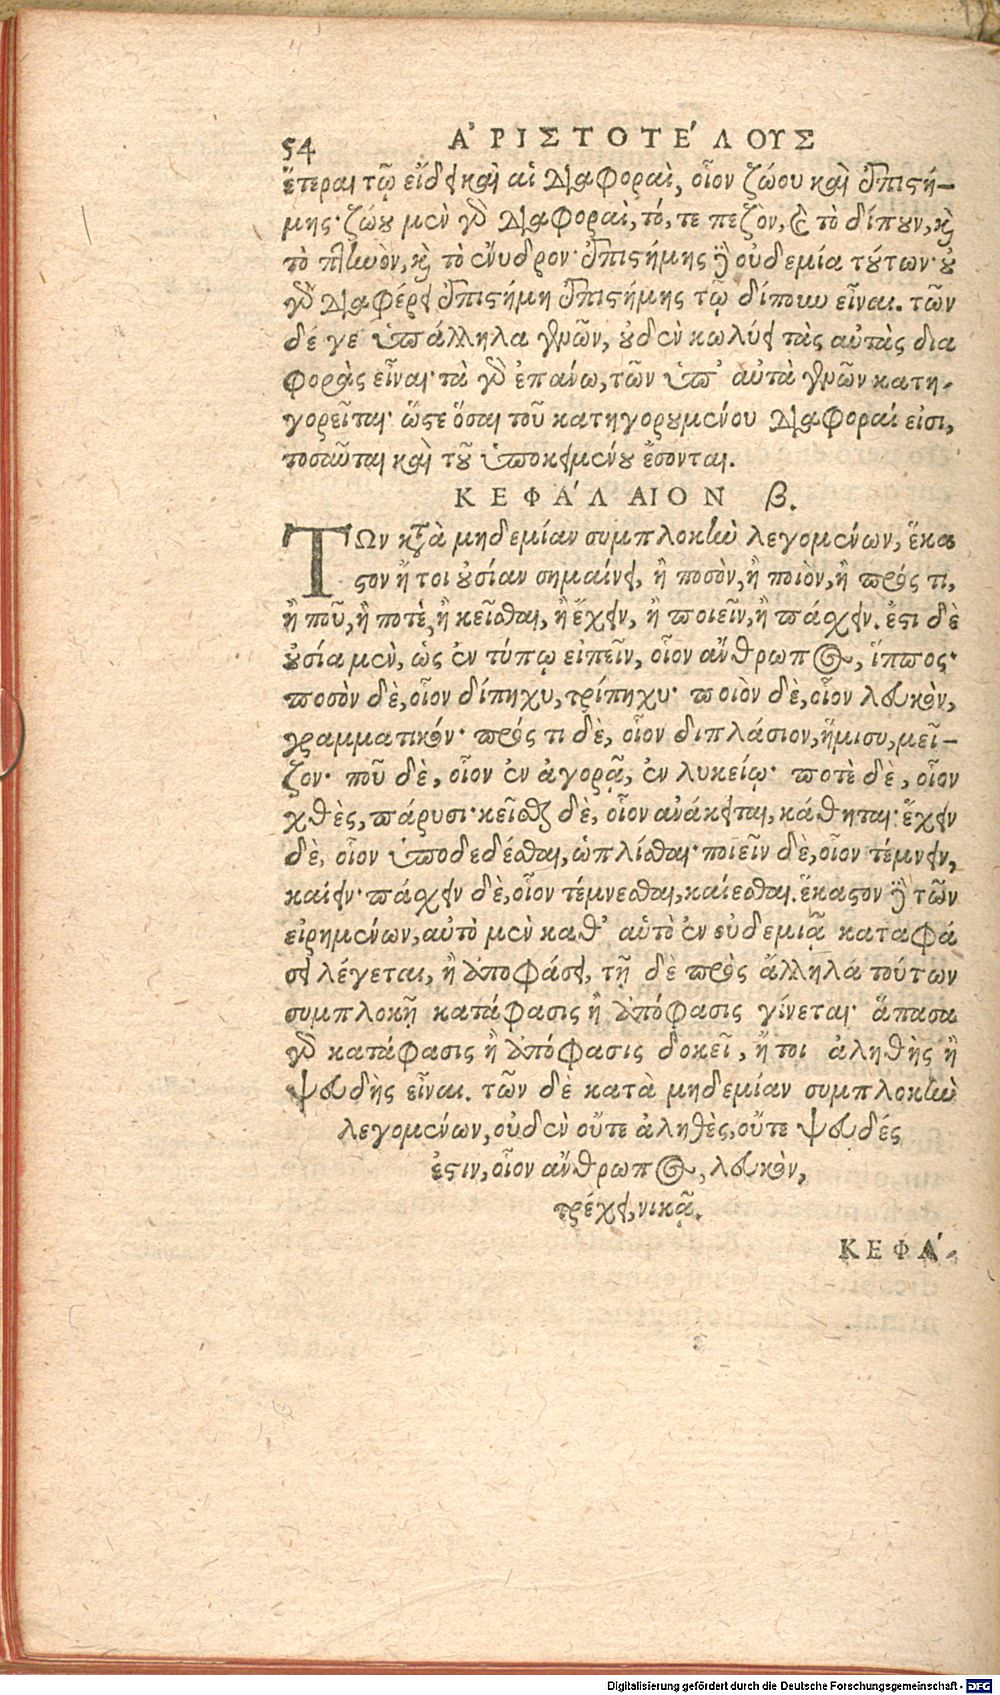 54 Α᾿ΡΙΣΤΟΤΕ´ΛΟΥΣ
ἕτεραι τῷ εἴδει καὶ αἱ διαφοραὶ, οἷον ζώου καὶ ἐπιστή-
μης· ζώου μὲν γὰρ διαφοραὶ, τό, τε πεζὸν, καὶ τὸ δίπουν, καὶ
τὸ πτηνὸν, καὶ τὸ ἔνυδρον· ἐπιστήμης δὲ οὐδεμία τούτων· οὐ
γὰρ διαφέρει ἐπιστήμη ἐπιστήμης τῷ δίπουν εἶναι. τῶν
δέ γε ὑπάλληλα γενῶν, οὐδὲν κωλύει τὰς αὐτὰς δια
φορὰς εἶναι· τὰ γὰρ ἐπάνω, τῶν ὑπ' αὐτὰ γενῶν κατη-
γορεῖται· ὥστε ὅσαι τοῦ κατηγορουμένου διαφοραί εἰσι,
τοσαῦται καὶ τοῦ ὑποκειμένου ἔσονται.
ΚΕΦΑ´ΛΑΙΟΝ β.
ΤΩν κατὰ μηδεμίαν συμπλοκὴν λεγομένων, ἕκα
στον ἤτοι οὐσίαν σημαίνει, ἢ ποσὸν, ἢ ποιὸν, ἢ πρός τι,
ἢ ποῦ, ἢ ποτὲ, ἢ κεῖσθαι, ἢ ἔχειν, ἢ ποιεῖν, ἢ πάσχειν. ἔστι δὲ
οὐσία μὲν, ὡς ἐν τύπῳ εἰπεῖν, οἷον ἄνθρωπος, ἵππος·
ποσὸν δὲ, οἷον δίπηχυ, τρίπηχυ· ποιὸν δὲ, οἷον λευκὸν,
γραμματικόν· πρός τι δὲ, οἷον διπλάσιον, ἥμισυ, μεῖ-
ζον· ποῦ δὲ, οἷον ἐν ἀγορᾷ, ἐν λυκείῳ· ποτὲ δὲ, οἷον
χθὲς, πέρυσι· κεῖσθαι δὲ, οἷον ἀνάκειται, κάθηται· ἔχειν
δὲ, οἷον ὑποδεδέσθαι, ὡπλίσθαι· ποιεῖν δὲ, οἷον τέμνειν,
καίειν· πάσχειν δὲ, οἷον τέμνεσθαι, καίεσθαι. ἕκαστον δὲ τῶν
εἰρημένων, αὐτὸ μὲν καθ' αὑτὸ ἐν οὐδεμιᾷ καταφά
σει λέγεται, ἢ ἀποφάσει, τῇ δὲ πρὸς ἄλληλα τούτων
συμπλοκῇ κατάφασις ἢ ἀπόφασις γίνεται· ἅπασα
γὰρ κατάφασις ἢ ἀπόφασις δοκεῖ, ἤτοι ἀληθὴς ἢ
ψευδὴς εἶναι. τῶν δὲ κατὰ μηδεμίαν συμπλοκὴν
λεγομένων, οὐδὲν οὔτε ἀληθὲς, οὔτε ψευδές
ἐστιν, οἷον ἄνθρωπος, λευκὸν,
τρέχει, νικᾷ.
ΚΕΦΑ´-
Digitalisierung gefördert durch die Deutsche Forschungsgemeinschaft - DFG